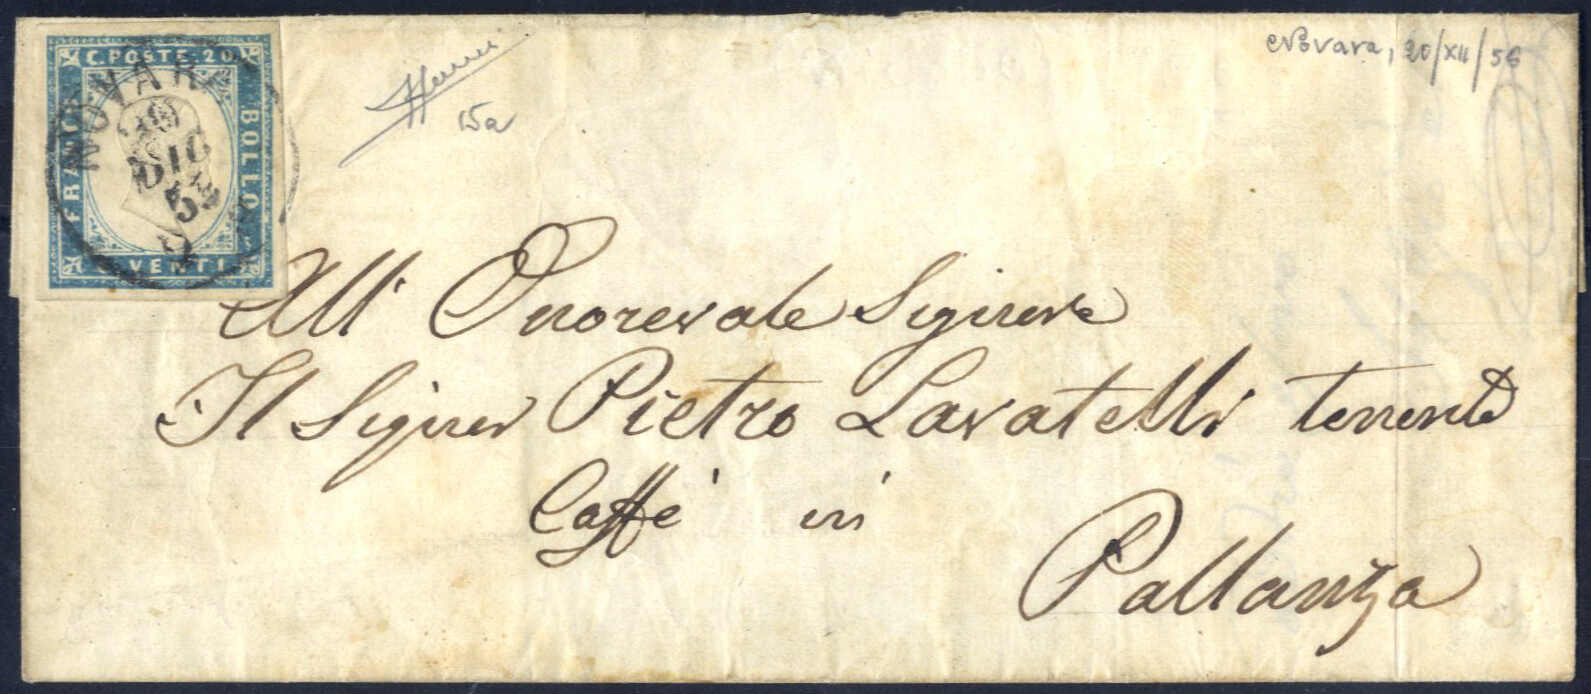 C. POSTE 20
FRANCO
BOLLO
VENTI
NOVARA
20
DIC
Novara, 20/XII/56
15a
All' Onorevole Signore
Il Signor Pietro Lavatelli tenente
Caffè in
Pallanza